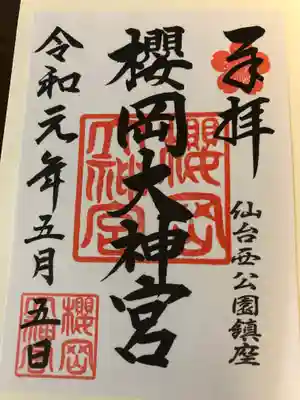 奉拝
仙台西公園鎮座
櫻岡大神宮
令和元年五月五日
櫻岡
大神宮